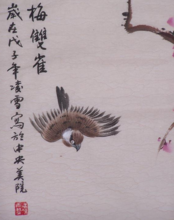 梅雙雀
歲在戊子年凌雪寫於中央美院